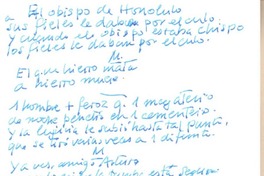 a El obispo de Honolulo
sus fieles le daban por el culo.
Y cuando el obispo estaba chispo
los fieles le daban por el culo.
M.
El q. a hierro mata
a hierro muere.
1 hombre + feroz q. 1 megaterio
de noche penetró en 1 cementerio.
Y la lujuria le subió hasta tal punto,
que se tiró varias veces a 1 difunto.
M
Ya ves, amigo Arturo